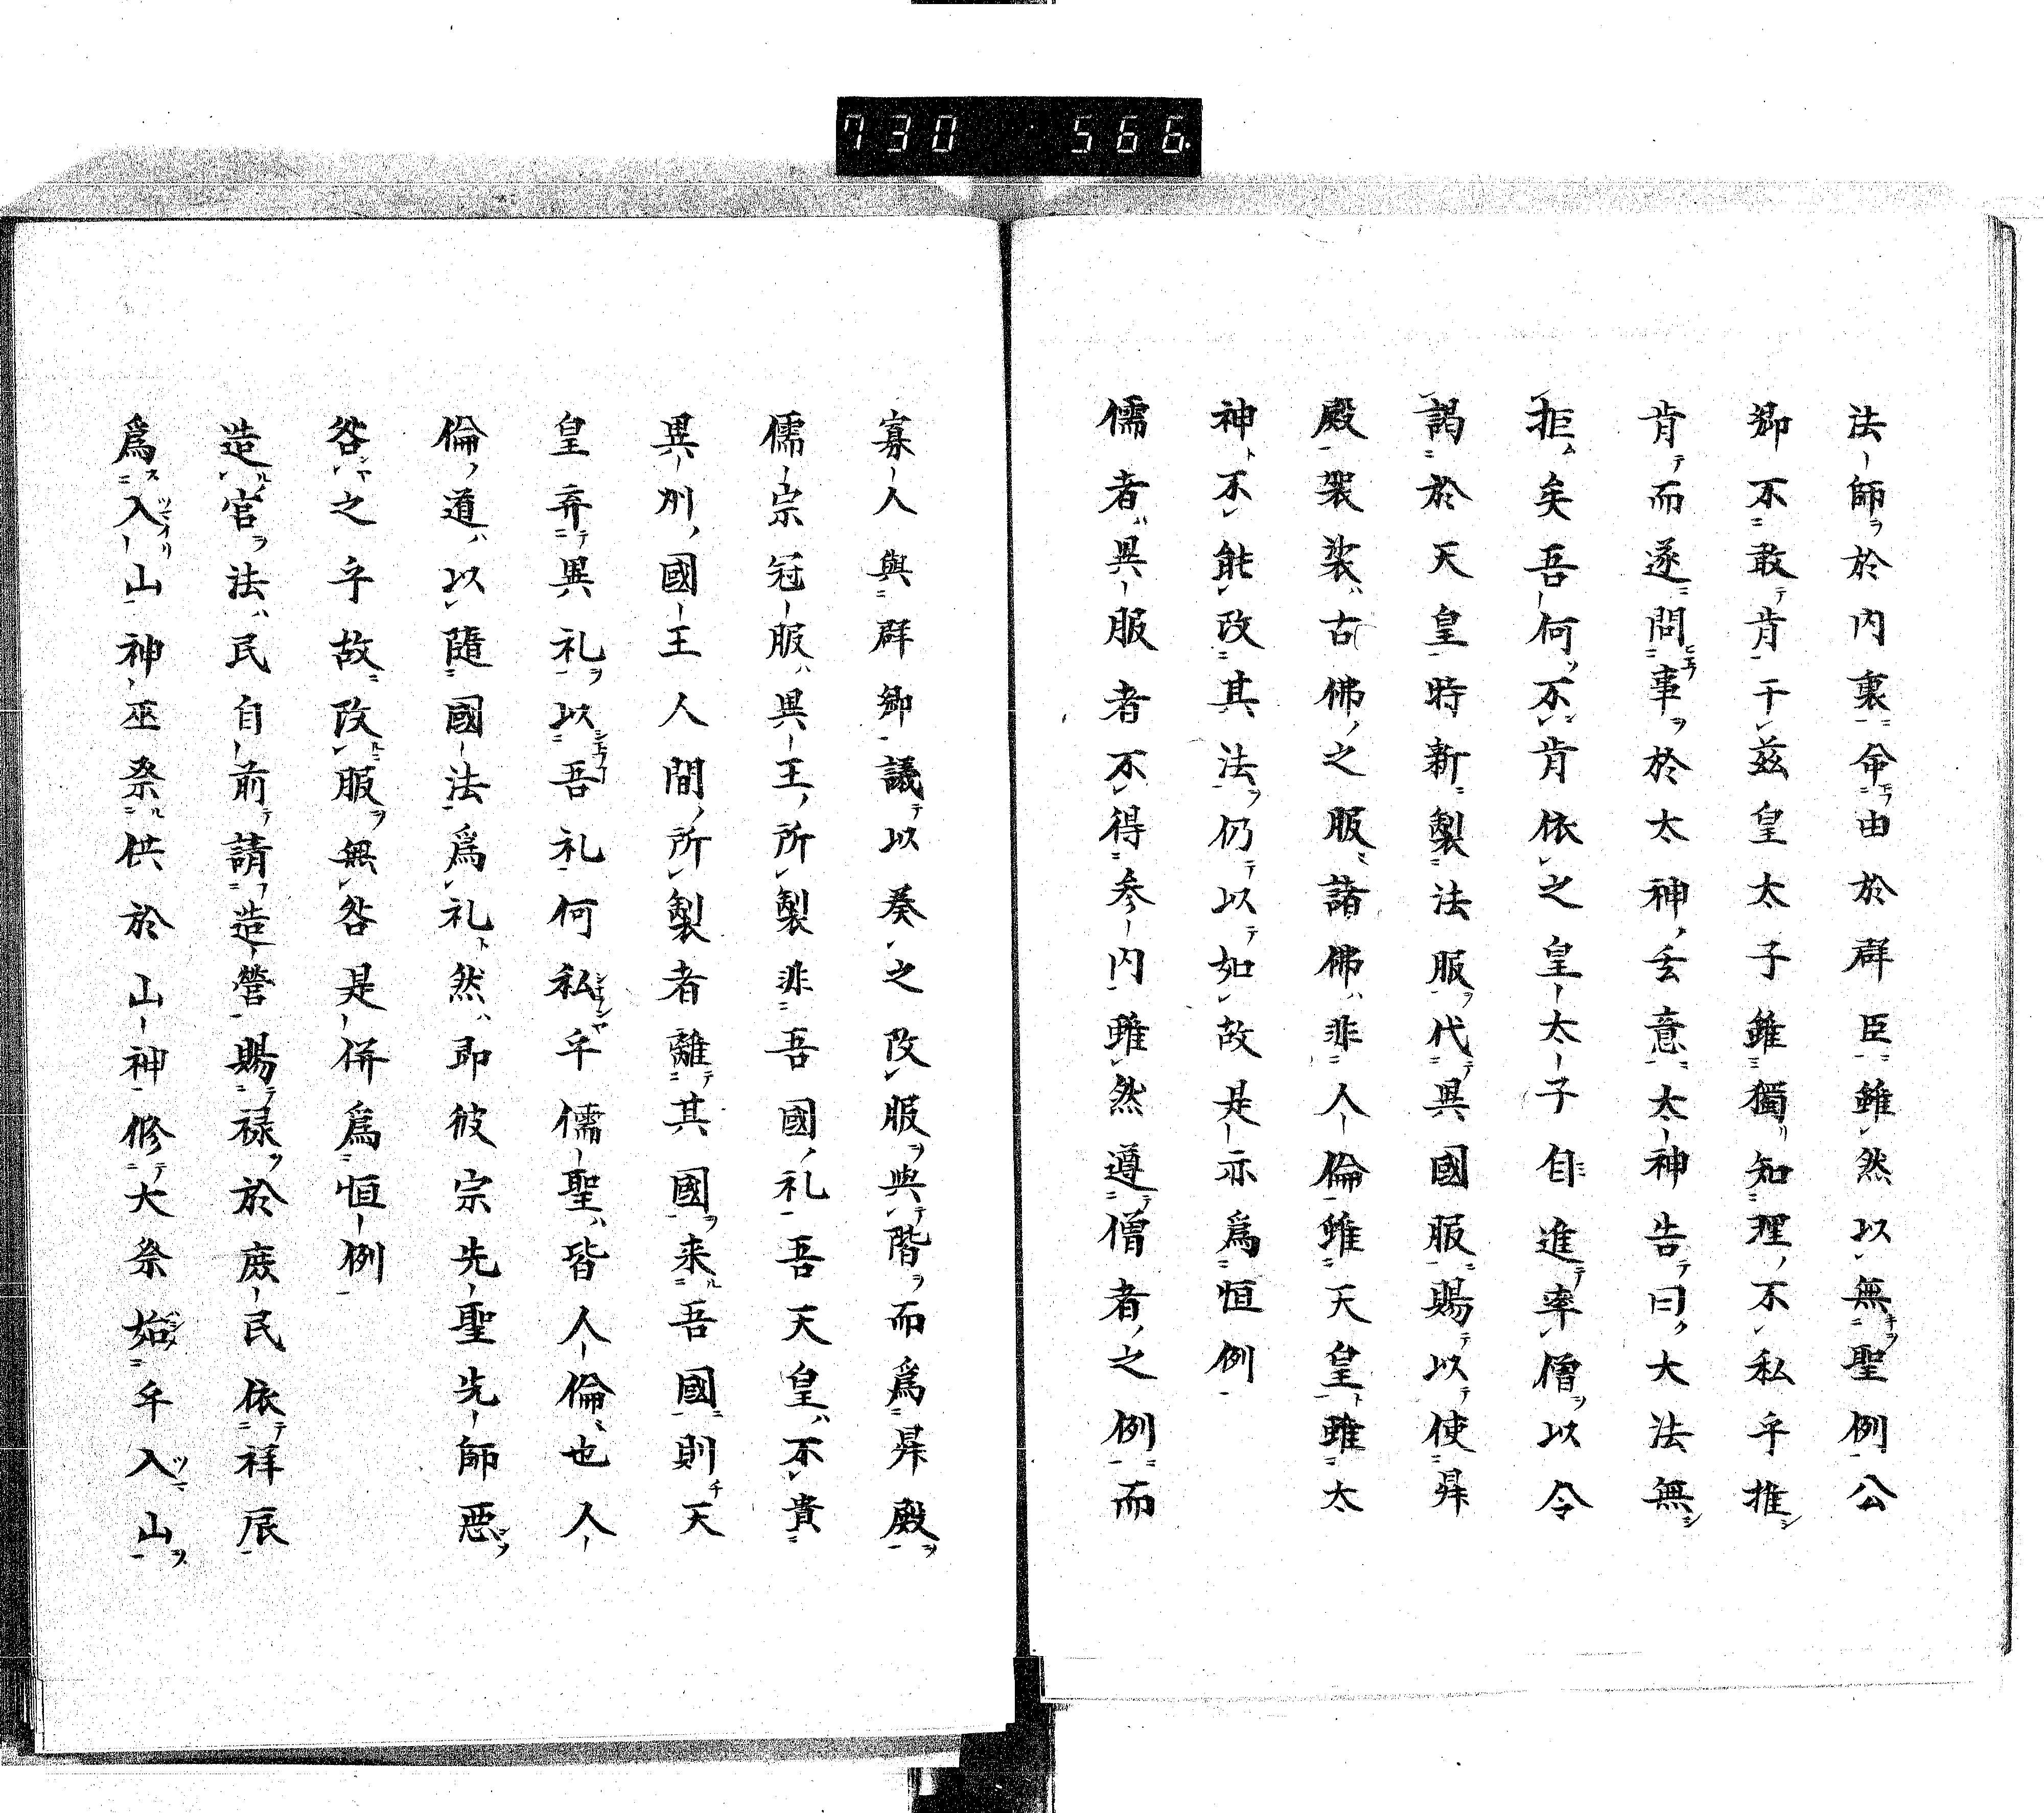 730 566
法師於内裏命由於群臣雖然以無聖例公
卿不敢肯于兹皇太子雖獨知理不私乎推
肯而遂問事於太神之意太神告曰大法無
拒矣吾何不肯依之皇太子自進率僧以令
謁於天皇時新製法服代異國服賜以使昇
殿袈裟古佛之服諸佛非人倫雖天皇雖太
神不能改其法仍以如故是亦為恒例
儒者異服者不得参内雖然遵僧者之例而
寡人與群卿議以奏之改服與階而為昇殿
儒宗冠服異王所製非吾國礼吾天皇不貴
異州國王人間所製者離其國来吾國則天
皇弃異礼以吾礼何私乎儒聖皆人倫也人
倫道以随國法為礼然即彼宗先聖先師惡
咎之乎故改服無咎是併為恒例
造官法民自前請造營賜禄於庶民依祥辰
為入山神巫祭供於山神修大祭始乎入山